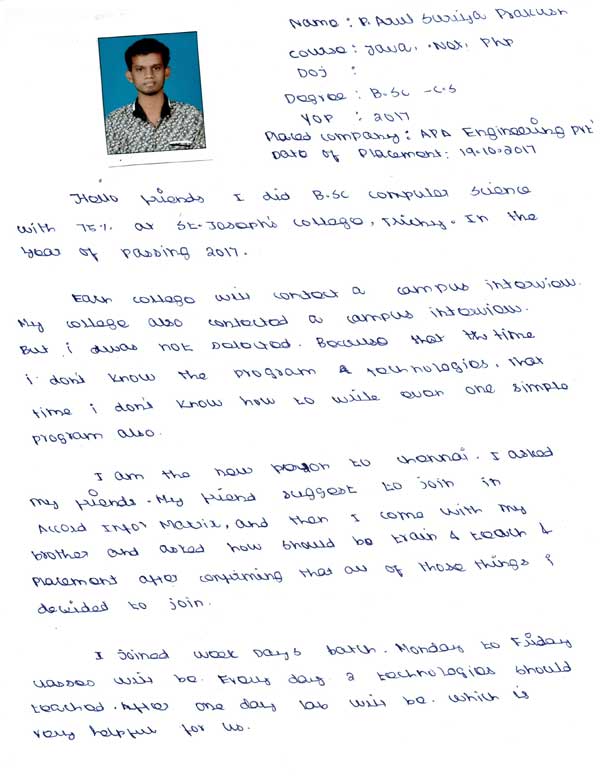 Name : P. Arul Suriya Prakash
Course : Java, .Net, Php
DOJ :
Degree : B.SC - C.S
YOP : 2017
Placed company : APA Engineering Pvt
Date of Placement : 19.10.2017
Hello friends I did B.SC computer science
with 75% at St. Joseph's college, Trichy. In the
year of passing 2017.
Each college will contact a campus interview.
My college also contacted a campus interview.
But i was not selected. Because that the time
i don't know the program & technologies. That
time i don't know how to write even one simple
program also.
I am the new person to chennai. I asked
my friends. My friend suggest to join in
Accord Infor Matrix, and then I come with my
brother and asked how should be train & teach &
placement after confirming that all of those things i
decided to join.
I joined week days batch. Monday to Friday
classes will be. Every day 2 technologies should
teached. After one day lab will be. which is
very helpful for us.